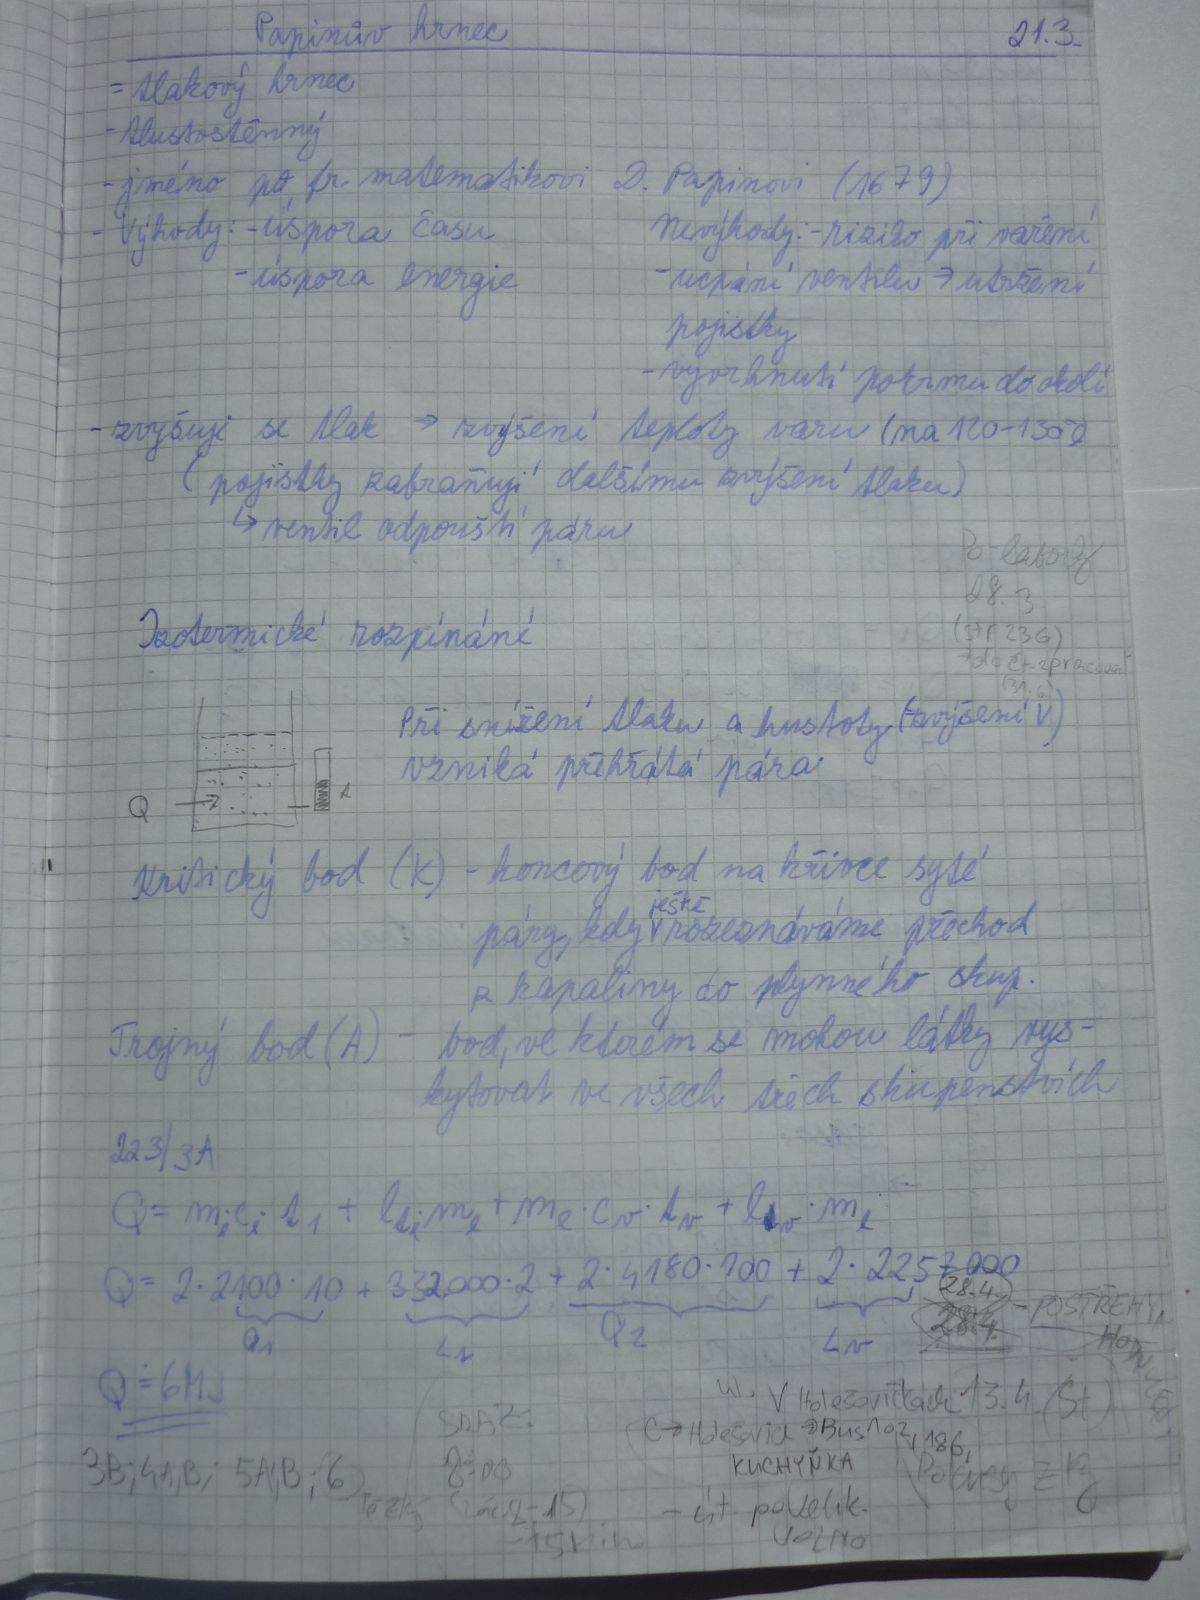 Papinův hrnec 21.3.
= tlakový hrnec
- tlustostěnný
- jméno po fr. matematikovi D. Papinovi (1679)
- Výhody: - úspora času
- úspora energie
Nevýhody: - riziko při vaření
- ucpání ventilu → utržení
pojistky
- vyvrhnutí pokrmu do okolí
- zvyšuje se tlak → zvýšení teploty varu (na 120-130°)
(pojistky zabraňují dalšímu zvýšení tlaku)
↳ ventil odpouští páru
Po - labor
28.3.
(str. 236)
Izotermické rozpínání
Při snížení tlaku a hustoty (→ zvýšení V)
vzniká přehřátá pára
Q
Kritický bod (K) - koncový bod na křivce syté
páry, kdy ještě rozeznáváme přechod
z kapaliny do plynného skup.
Trojný bod (A) - bod, ve kterém se mohou látky vys-
kytovat ve všech třech skupenstvích
223/3A
Q = mᵢcᵢ t₁ + lₜᵢ mₑ + mₑ · cᵥ · tᵥ + lᵥ · mₑ
Q = 2 · 2100 · 10 + 332000 · 2 + 2 · 4180 · 100 + 2 · 2257000
Q₁ Lₜ Q₂ Lᵥ
28.4. - POSTŘEHY,
28.4.
Q ≐ 6MJ
ul. V Holešovičkách 13.4. (Čt)
SRAZ:
C → Holešovic → Bus 102, 186,
3B; 4A,B; 5A,B; 6
8:00
KUCHYŇKA
Pokusy z